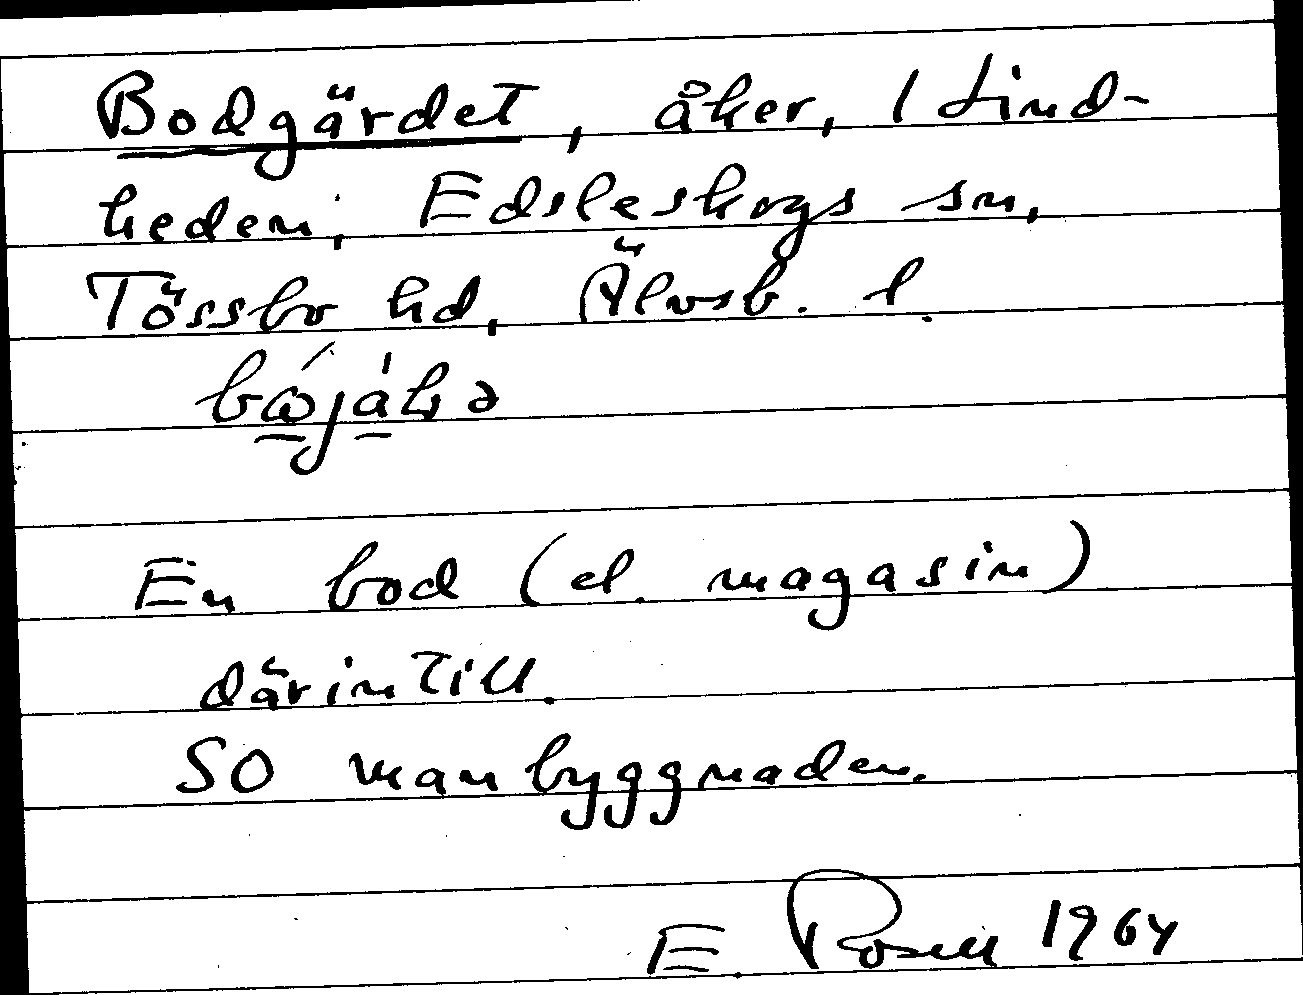 Bodgärdet, åker, 1 Lind-
heden, Edsleskogs sn,
Tössbo hd, Älvsb. l.
En bod (el. magasin)
därintill.
SO manbyggnaden.
E. Rosell 1964